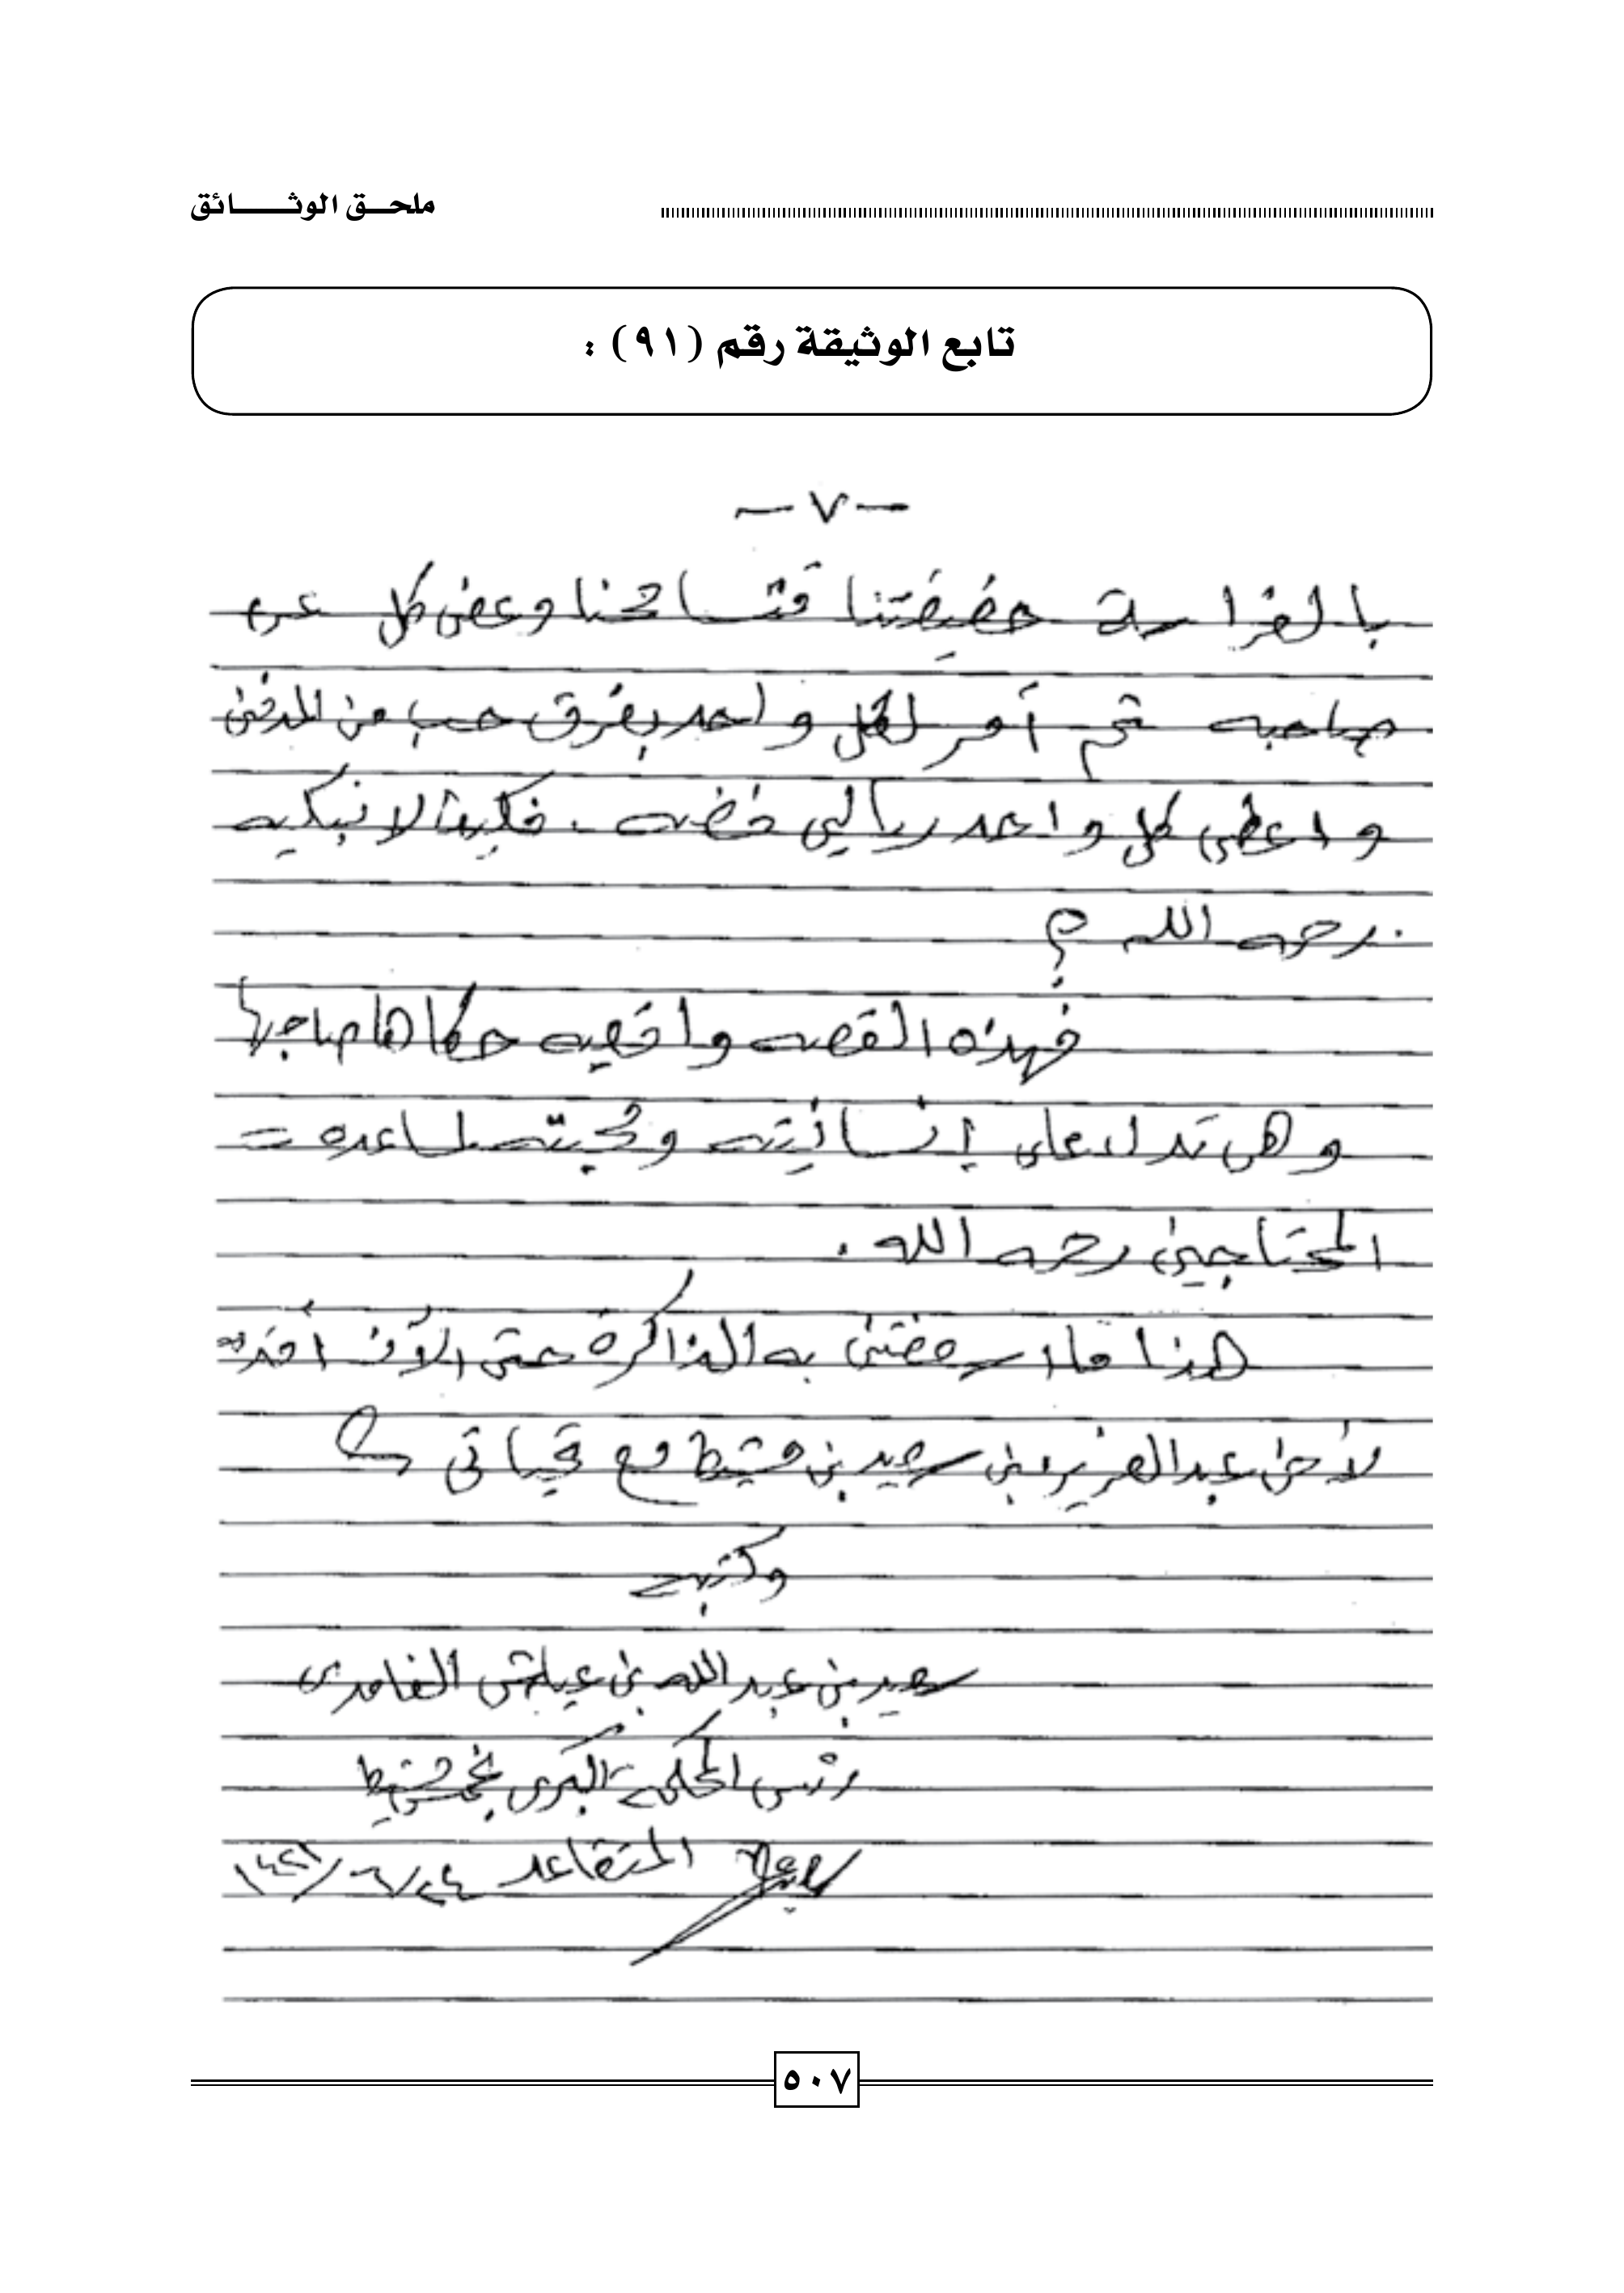 ملحق الوثائق
تابع الوثيقة رقم (٩١) :
– ٧ –
بالفراسة حقيقتنا فتسامحنا وعفى كل عن
صاحبه ثم أمر لكل واحد بفرق حب من المدفن
واعطى كل واحد ريالين فضه . فكيف لا نبكيه
رحمه الله ؟
فهذه القصه واقعيه حكاها صاحبها
وهي تدل على إنسانيته ومحبته لمساعدة =
المحتاجين رحمه الله .
هذا ما اسعفتني به الذاكرة حتى الآن أقدمه
لأخي عبدالعزيز بن سعيد بن مشيط مع تحياتي
وكتبه
سعيد بن عبدالله بن عياش الغامدي
رئيس المحكمة الكبرى بخميس مشيط
المتقاعد ٢٤/٦/١٤٢١
٥٠٧